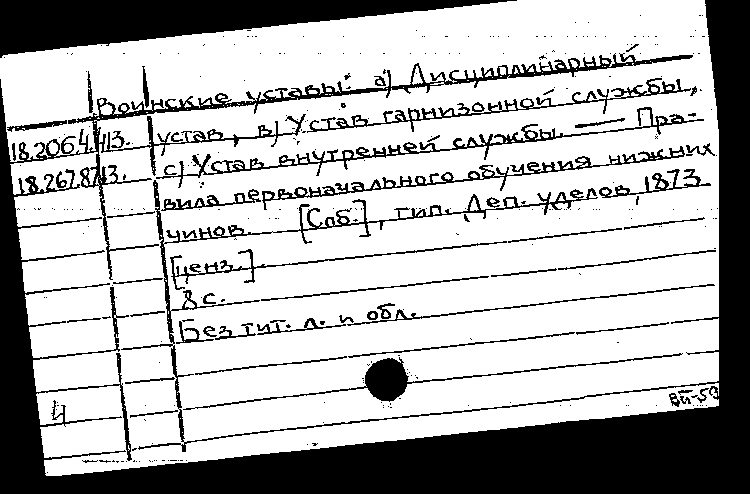 Воинские уставы: а) Дисциплинарный
18.206.4.413. устав, в) Устав гарнизонной службы,
18.267.8.13. с) Устав внутренней службы. — Пра-
вила первоначального обучения нижних
чинов. [Спб.], тип. Деп. уделов, 1873
[ценз.].
8 с.
Без тит. л. и обл.
4